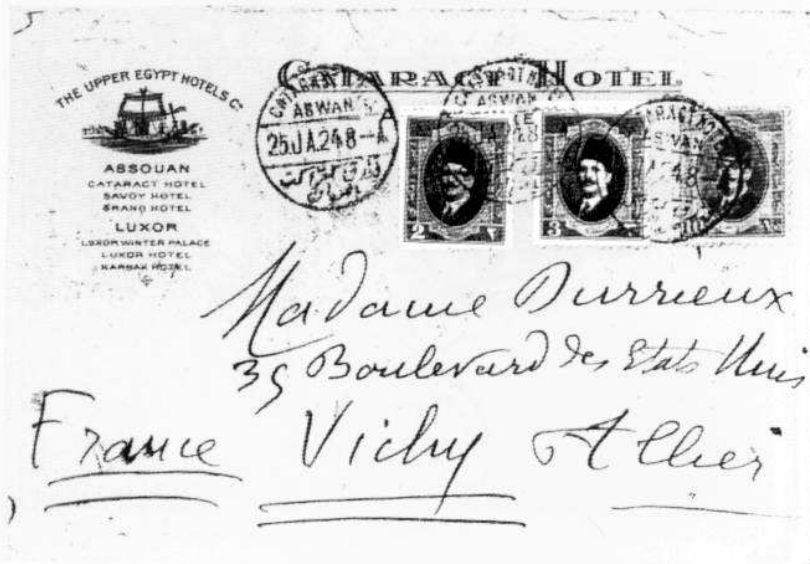 THE UPPER EGYPT HOTELS Cº
ASSOUAN
CATARACT HOTEL
SAVOY HOTEL
GRAND HOTEL
LUXOR
LUXOR WINTER PALACE
LUXOR HOTEL
KARNAK HOTEL
CATARACT HOTEL
CATARACT HOTEL
ASWAN
25.JA.24 8-A
ASWAN
CATARACT HOTEL
ASWAN
24 8-
2 ٢
3
Madame Durrieux
35 Boulevard des Etats Unis
France Vichy Allier